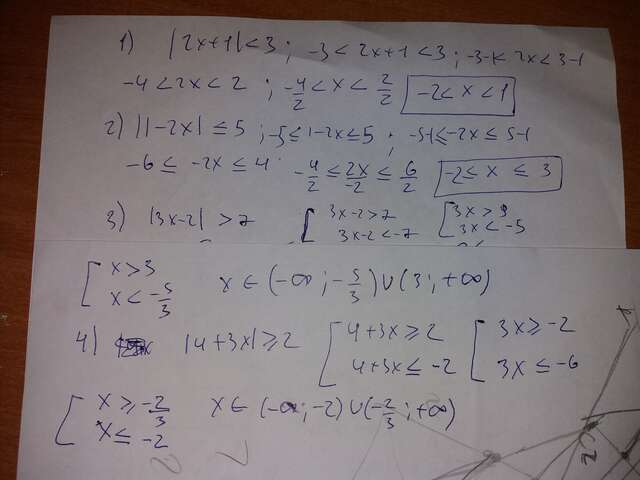 1) |2x+1|<3 ; -3<2x+1<3 ; -3-1<2x<3-1
-4<2x<2 ; -4/2<x<2/2 -2<x<1
2) |1-2x|≤5 ; -5≤1-2x≤5 ; -5-1≤-2x≤5-1
-6≤-2x≤4 ; -4/2≤2x/-2≤6/2 2≤x≤3
3) |3x-2|>7 [ 3x-2>7 [ 3x>9
3x-2<-7 3x<-5
[ x>3
x<-5/3 x∈(-∞;-5/3)∪(3;+∞)
4) |4+3x|≥2 [ 4+3x≥2 [ 3x≥-2
4+3x≤-2 3x≤-6
[ x≥-2/3
x≤-2 x∈(-∞;-2)∪(-2/3;+∞)